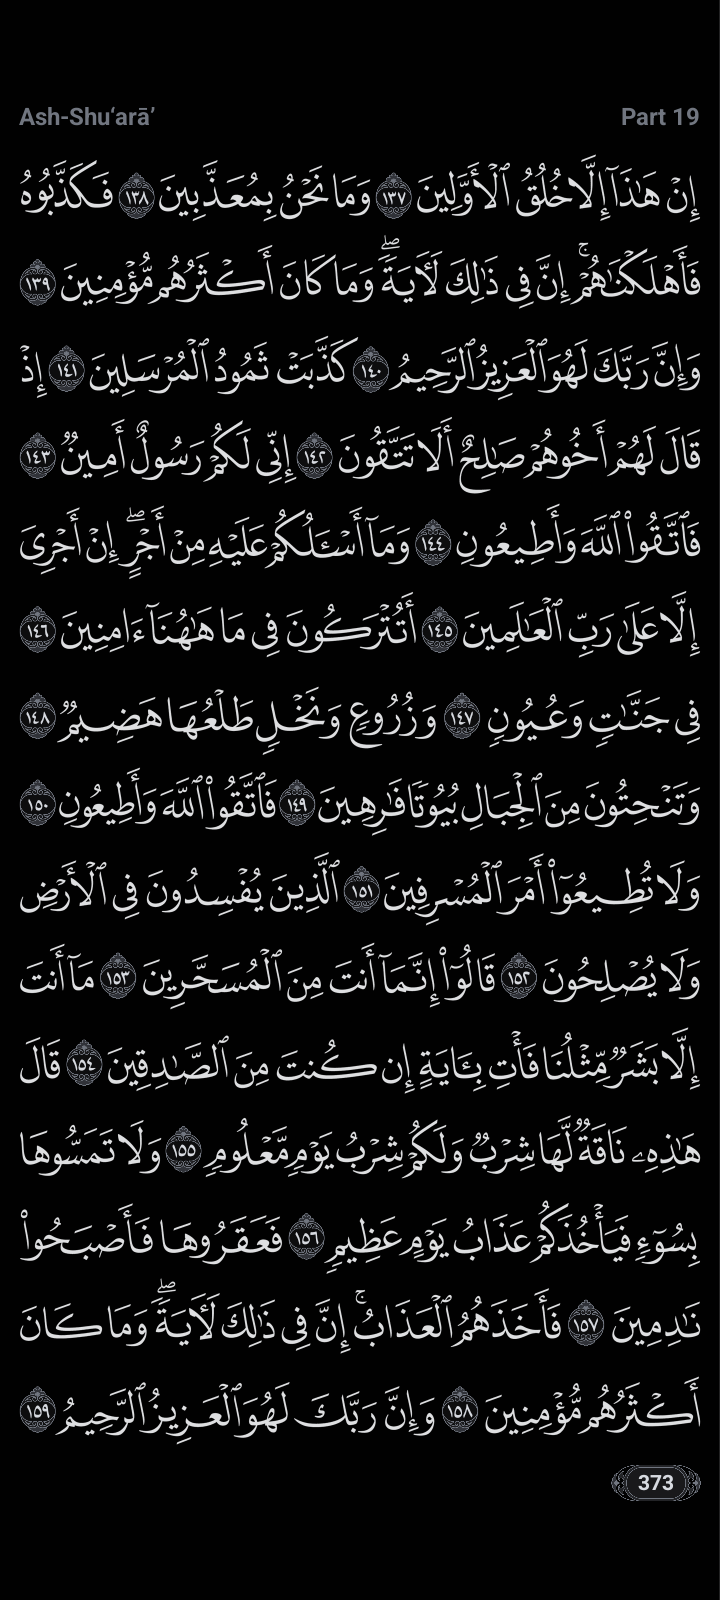 Ash-Shu‘arā’ Part 19
إِنۡ هَٰذَآ إِلَّا خُلُقُ ٱلۡأَوَّلِينَ ١٣٧ وَمَا نَحۡنُ بِمُعَذَّبِينَ ١٣٨ فَكَذَّبُوهُ
فَأَهۡلَكۡنَٰهُمۡۚ إِنَّ فِي ذَٰلِكَ لَأٓيَةٗۖ وَمَا كَانَ أَكۡثَرُهُم مُّؤۡمِنِينَ ١٣٩
وَإِنَّ رَبَّكَ لَهُوَ ٱلۡعَزِيزُ ٱلرَّحِيمُ ١٤٠ كَذَّبَتۡ ثَمُودُ ٱلۡمُرۡسَلِينَ ١٤١ إِذۡ
قَالَ لَهُمۡ أَخُوهُمۡ صَٰلِحٌ أَلَا تَتَّقُونَ ١٤٢ إِنِّي لَكُمۡ رَسُولٌ أَمِينٞ ١٤٣
فَٱتَّقُواْ ٱللَّهَ وَأَطِيعُونِ ١٤٤ وَمَآ أَسۡـَٔلُكُمۡ عَلَيۡهِ مِنۡ أَجۡرٍۖ إِنۡ أَجۡرِيَ
إِلَّا عَلَىٰ رَبِّ ٱلۡعَٰلَمِينَ ١٤٥ أَتُتۡرَكُونَ فِي مَا هَٰهُنَآ ءَامِنِينَ ١٤٦
فِي جَنَّٰتٖ وَعُيُونٖ ١٤٧ وَزُرُوعٖ وَنَخۡلٖ طَلۡعُهَا هَضِيمٞ ١٤٨
وَتَنۡحِتُونَ مِنَ ٱلۡجِبَالِ بُيُوتٗا فَٰرِهِينَ ١٤٩ فَٱتَّقُواْ ٱللَّهَ وَأَطِيعُونِ ١٥٠
وَلَا تُطِيعُوٓاْ أَمۡرَ ٱلۡمُسۡرِفِينَ ١٥١ ٱلَّذِينَ يُفۡسِدُونَ فِي ٱلۡأَرۡضِ
وَلَا يُصۡلِحُونَ ١٥٢ قَالُوٓاْ إِنَّمَآ أَنتَ مِنَ ٱلۡمُسَحَّرِينَ ١٥٣ مَآ أَنتَ
إِلَّا بَشَرٞ مِّثۡلُنَا فَأۡتِ بِـَٔايَةٍ إِن كُنتَ مِنَ ٱلصَّٰدِقِينَ ١٥٤ قَالَ
هَٰذِهِۦ نَاقَةٞ لَّهَا شِرۡبٞ وَلَكُمۡ شِرۡبُ يَوۡمٖ مَّعۡلُومٖ ١٥٥ وَلَا تَمَسُّوهَا
بِسُوٓءٖ فَيَأۡخُذَكُمۡ عَذَابُ يَوۡمٍ عَظِيمٖ ١٥٦ فَعَقَرُوهَا فَأَصۡبَحُواْ
نَٰدِمِينَ ١٥٧ فَأَخَذَهُمُ ٱلۡعَذَابُۚ إِنَّ فِي ذَٰلِكَ لَأٓيَةٗۖ وَمَا كَانَ
أَكۡثَرُهُم مُّؤۡمِنِينَ ١٥٨ وَإِنَّ رَبَّكَ لَهُوَ ٱلۡعَزِيزُ ٱلرَّحِيمُ ١٥٩
373